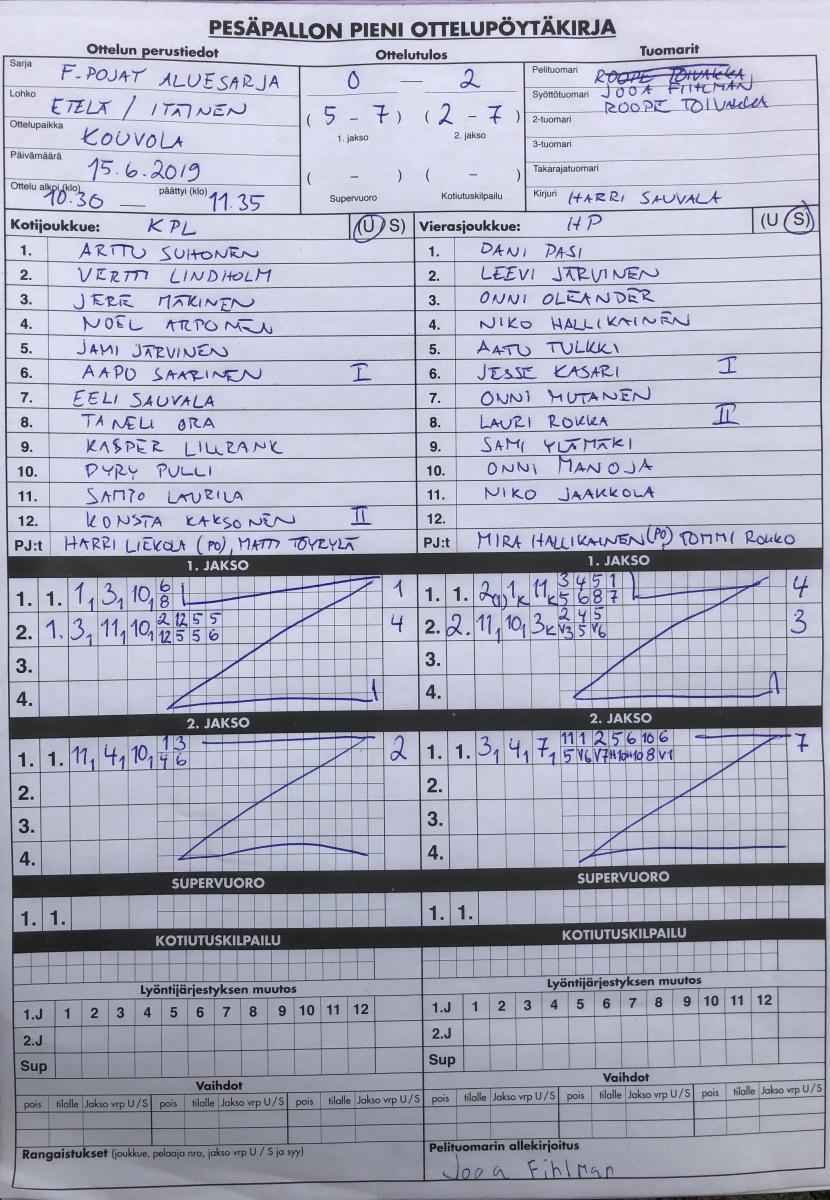 PESÄPALLON PIENI OTTELUPÖYTÄKIRJA
Ottelun perustiedot
Sarja F-POJAT ALUESARJA
Lohko ETELÄ / ITÄINEN
Ottelupaikka KOUVOLA
Päivämäärä 15.6.2019
Ottelu alkoi (klo) 10.30 — päättyi (klo) 11.35
Ottelutulos
0 — 2
( 5 - 7 ) ( 2 - 7 )
1. jakso 2. jakso
( - ) ( - )
Supervuoro Kotiutuskilpailu
Tuomarit
Pelituomari ROOPE TOIVAKKA
JOOA FIHLMAN
Syöttötuomari ROOPE TOIVAKKA
2-tuomari
3-tuomari
Takarajatuomari
Kirjuri HARRI SAUVALA
Kotijoukkue: KPL (U S)
1. ARTTU SUHONEN
2. VERTTI LINDHOLM
3. JERE MÄKINEN
4. NOEL ARPONEN
5. JAMI JÄRVINEN
6. AAPO SAARINEN I
7. EELI SAUVALA
8. TANELI ORA
9. KASPER LILLRANK
10. PYRY PULLI
11. SAMPO LAURILA
12. KONSTA KAKSONEN II
PJ:t HARRI LIEKOLA (PO), MATTI TÖYRYLÄ
Vierasjoukkue: HP (U S)
1. DANI PASI
2. LEEVI JÄRVINEN
3. ONNI OLEANDER
4. NIKO HALLIKAINEN
5. AATU TULKKI
6. JESSE KASARI I
7. ONNI MUTANEN
8. LAURI ROKKA II
9. SAMI YLÄMÄKI
10. ONNI MANOJA
11. NIKO JAAKKOLA
12.
PJ:t MIRA HALLIKAINEN (PO), TOMMI ROUKO
1. JAKSO
1. 1. 1, 3, 10, 6 1
8
2. 1. 3, 11, 10, 2 12 5 5 4
12 5 5 6
3.
4.
1. JAKSO
1. 1. 2(1) 1K 11K 3 4 5 1 4
5 6 8 7
2. 2. 11, 10, 3K 2 4 5 3
V3 5 V6
3.
4.
2. JAKSO
1. 1. 11, 4, 10, 1 3 2
4 6
2.
3.
4.
2. JAKSO
1. 1. 3, 4, 7, 11 1 2 5 6 10 6 7
5 V6 V7 H10 H10 8 V1
2.
3.
4.
SUPERVUORO
1. 1.
SUPERVUORO
1. 1.
KOTIUTUSKILPAILU
KOTIUTUSKILPAILU
Lyöntijärjestyksen muutos
1.J 1 2 3 4 5 6 7 8 9 10 11 12
2.J
Sup
Lyöntijärjestyksen muutos
1.J 1 2 3 4 5 6 7 8 9 10 11 12
2.J
Sup
Vaihdot
pois tilalle Jakso vrp U / S pois tilalle Jakso vrp U / S pois tilalle Jakso vrp U / S
Vaihdot
pois tilalle Jakso vrp U / S pois tilalle Jakso vrp U / S pois tilalle Jakso vrp U / S
Rangaistukset (joukkue, pelaaja nro, jakso vrp U / S ja syy)
Pelituomarin allekirjoitus
Jooa Fihlman